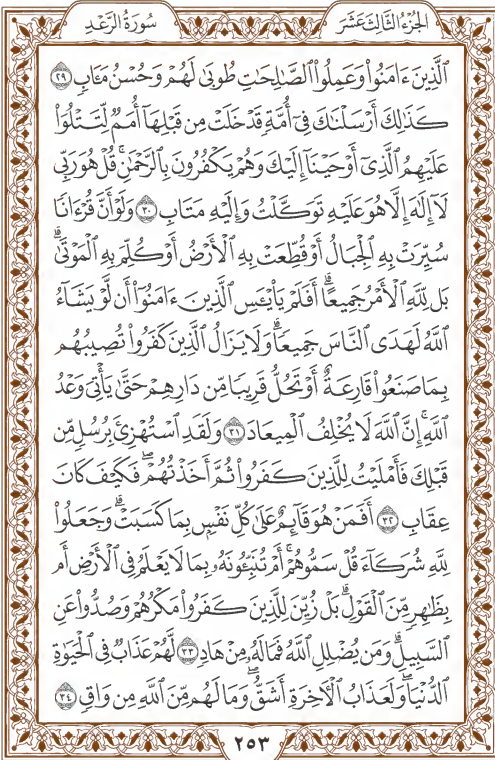 الجزء الثالث عشر
سورة الرعد
ٱلَّذِينَ ءَامَنُوا۟ وَعَمِلُوا۟ ٱلصَّٰلِحَٰتِ طُوبَىٰ لَهُمْ وَحُسْنُ مَـَٔابٍ ٢٩
كَذَٰلِكَ أَرْسَلْنَٰكَ فِىٓ أُمَّةٍ قَدْ خَلَتْ مِن قَبْلِهَآ أُمَمٌ لِّتَتْلُوَا۟
عَلَيْهِمُ ٱلَّذِىٓ أَوْحَيْنَآ إِلَيْكَ وَهُمْ يَكْفُرُونَ بِٱلرَّحْمَٰنِ ۚ قُلْ هُوَ رَبِّى
لَآ إِلَٰهَ إِلَّا هُوَ عَلَيْهِ تَوَكَّلْتُ وَإِلَيْهِ مَتَابِ ٣٠ وَلَوْ أَنَّ قُرْءَانًا
سُيِّرَتْ بِهِ ٱلْجِبَالُ أَوْ قُطِّعَتْ بِهِ ٱلْأَرْضُ أَوْ كُلِّمَ بِهِ ٱلْمَوْتَىٰ ۗ
بَل لِّلَّهِ ٱلْأَمْرُ جَمِيعًا ۗ أَفَلَمْ يَا۟يْـَٔسِ ٱلَّذِينَ ءَامَنُوٓا۟ أَن لَّوْ يَشَآءُ
ٱللَّهُ لَهَدَى ٱلنَّاسَ جَمِيعًا ۗ وَلَا يَزَالُ ٱلَّذِينَ كَفَرُوا۟ تُصِيبُهُم
بِمَا صَنَعُوا۟ قَارِعَةٌ أَوْ تَحُلُّ قَرِيبًا مِّن دَارِهِمْ حَتَّىٰ يَأْتِىَ وَعْدُ
ٱللَّهِ ۚ إِنَّ ٱللَّهَ لَا يُخْلِفُ ٱلْمِيعَادَ ٣١ وَلَقَدِ ٱسْتُهْزِئَ بِرُسُلٍ مِّن
قَبْلِكَ فَأَمْلَيْتُ لِلَّذِينَ كَفَرُوا۟ ثُمَّ أَخَذْتُهُمْ ۖ فَكَيْفَ كَانَ
عِقَابِ ٣٢ أَفَمَنْ هُوَ قَآئِمٌ عَلَىٰ كُلِّ نَفْسٍۭ بِمَا كَسَبَتْ ۗ وَجَعَلُوا۟
لِلَّهِ شُرَكَآءَ قُلْ سَمُّوهُمْ ۚ أَمْ تُنَبِّـُٔونَهُۥ بِمَا لَا يَعْلَمُ فِى ٱلْأَرْضِ أَم
بِظَٰهِرٍ مِّنَ ٱلْقَوْلِ ۗ بَلْ زُيِّنَ لِلَّذِينَ كَفَرُوا۟ مَكْرُهُمْ وَصُدُّوا۟ عَنِ
ٱلسَّبِيلِ ۗ وَمَن يُضْلِلِ ٱللَّهُ فَمَا لَهُۥ مِنْ هَادٍ ٣٣ لَّهُمْ عَذَابٌ فِى ٱلْحَيَوٰةِ
ٱلدُّنْيَا ۖ وَلَعَذَابُ ٱلْءَاخِرَةِ أَشَقُّ ۖ وَمَا لَهُم مِّنَ ٱللَّهِ مِن وَاقٍ ٣٤
٢٥٣